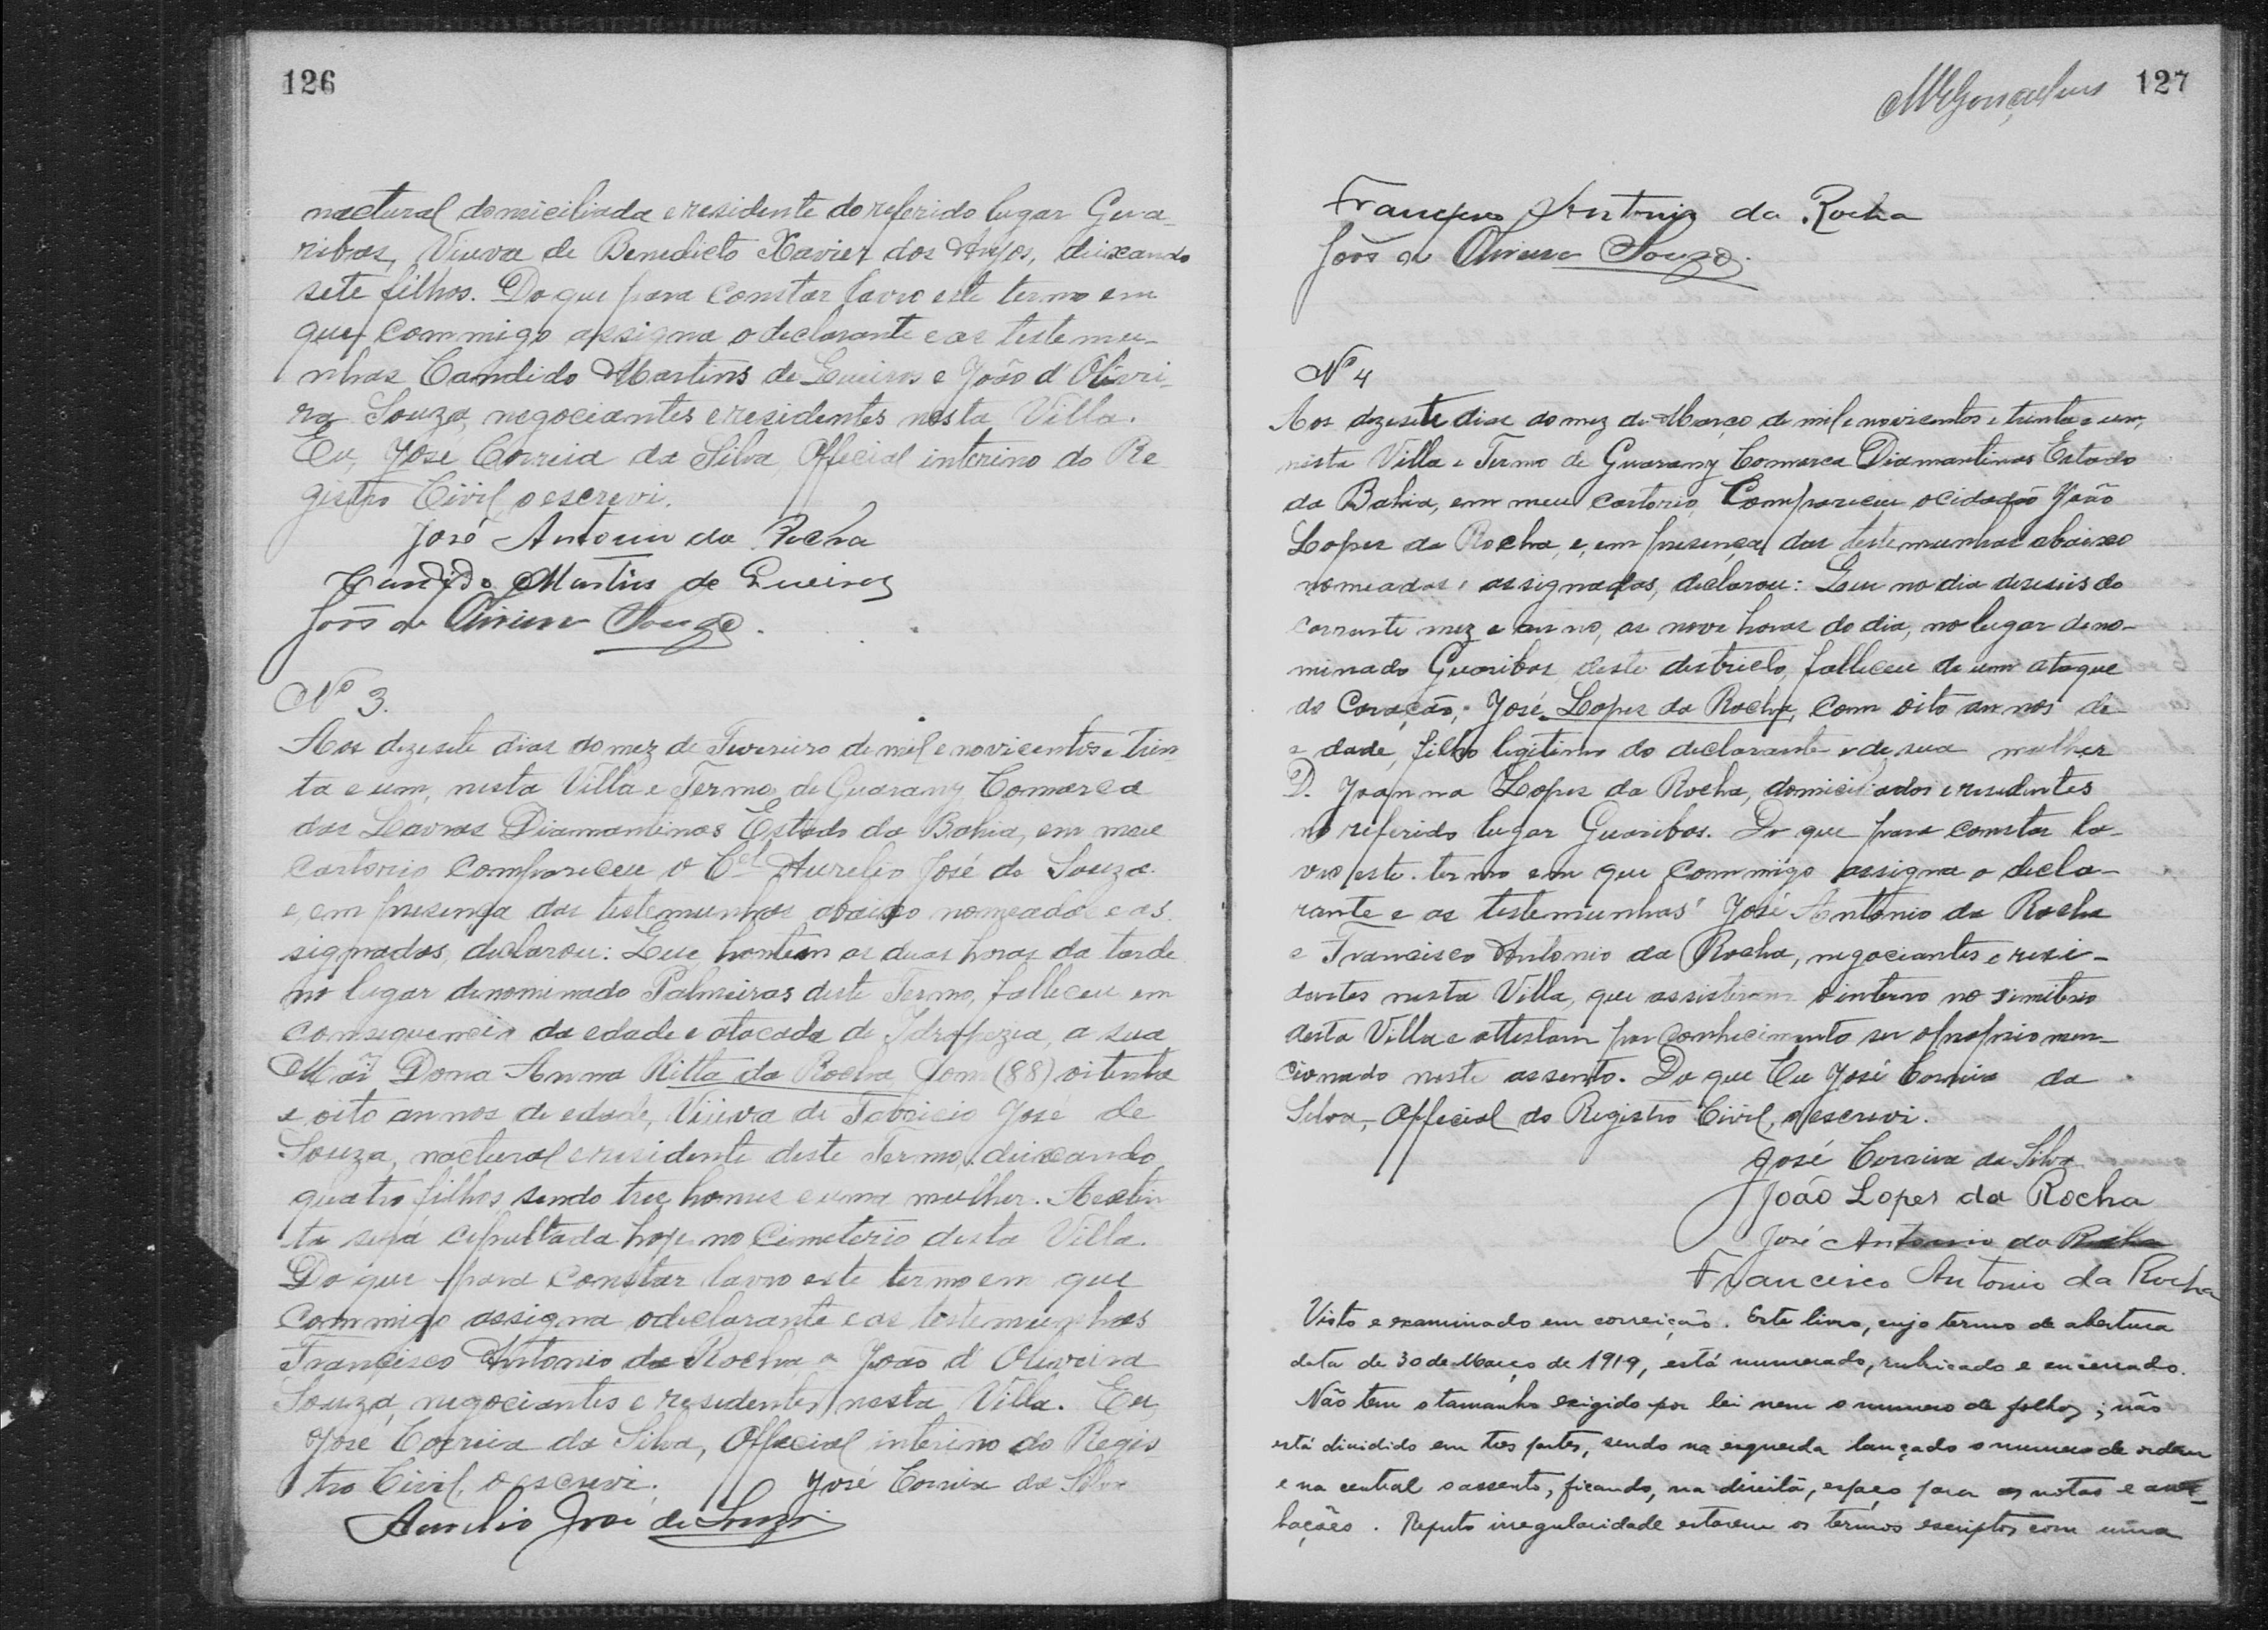 126
nactural domiciliada e residente do referido lugar Gua-
ribas, Viuva de Benedicto Xavier dos Anjos, deixando
sete filhos. Do que para constar lavro este termo em
que commigo assigna o declarante e as testemu-
nhas Candido Martins de Queiros e João d'Olivei-
ra Souza, negociantes e residentes nesta Villa.
Eu, José Correia da Silva Official interino do Re
gistro Civil o escrevi.
José Antonio da Rocha
Candido Martins de Queiroz
João de Oliveira Souza.
Nº 3.
Aos dezesete dias do mez de Fevereiro de mil e novicentos e trin-
ta e um, nesta Villa e Termo de Guarany Comarca
das Lavras Diamantinas Estado da Bahia, em meu
cartorio compareceu o Cel Aurelio José de Souza
e, em presença das testemunhas abaixo nomeadas e as
signados, declarou: Que, hontem as duas horas da tarde
no lugar denominado Palmeiras deste Termo, falleceu em
consequencia da edade e atacada de Idropezia, a sua
Mãi Dona Anna Ritta da Rocha, com (88) oitenta
e oito annos de edade, Viúva de Fabricio José de
Souza, nactural e residente deste Termo, deixando
quatro filhos sendo tres homes e uma mulher. A extin
ta será cepultada hoje no Cimeterio desta Villa.
Do que para constar lavro este termo em que
commigo assigna o declarante e as testemunhas
Francisco Antonio da Rocha e João d'Oliveira
Souza, negociantes e residentes nesta Villa. Eu
José Correia da Silva, Official interino do Regis-
tro Civil, o escrevi. José Correia da Silva
Aurelio José de Souza
127
Francisco Antonio da Rocha
João de Oliveira Souza.
Nº 4
Aos dezesete dias do mez de Março de mil e novicentos e trinta e um,
nesta Villa e Termo de Guarany Commarca Diamantinas Estado
da Bahia, em meu cartorio, Compareceu o cidadão João
Lopes da Rocha, e, em presença das testemunhas abaixo
nomeadas e assignados, declarou: Que no dia deseseis do
corrente mez e anno, as nove horas do dia, no lugar deno-
minado Guaribas deste destricto, falleceu de um ataque
do Coração, José Lopes da Rocha, com oito annos de
edade, filho legitimo do declarante e de sua mulher
D. Joanna Lopes da Rocha, domiciliados e residentes
no referido lugar Guaribas. Do que para constar la-
vro este termo em que commigo assigna o decla-
rante e as testemunhas José Antonio da Rocha
e Francisco Antonio da Rocha, negociantes e resi-
dentes nesta Villa, que assistiram o interro no simiterio
desta Villa e attestam por conhecimento ser o proprio men-
cionado neste assento. Do que Eu José Correia da
Silva, Official do Registro Civil, o escrevi.
José Correia da Silva
João Lopes da Rocha
José Antonio da Rocha
Francisco Antonio da Rocha
Visto e examinado em correição. Este livro, cujo termo de abertura
data de 30 de Março de 1919, está numerado, rubricado e encerrado.
Não tem o tamanho exigido por lei nem o numero de folhas; não
está dividido em tres partes, sendo na esquerda lançado o numero de ordem
e na central o assento, ficando, na direita, espaço para as notas e aver-
bações. Reputo irregularidade estarem os termos escriptos com uma